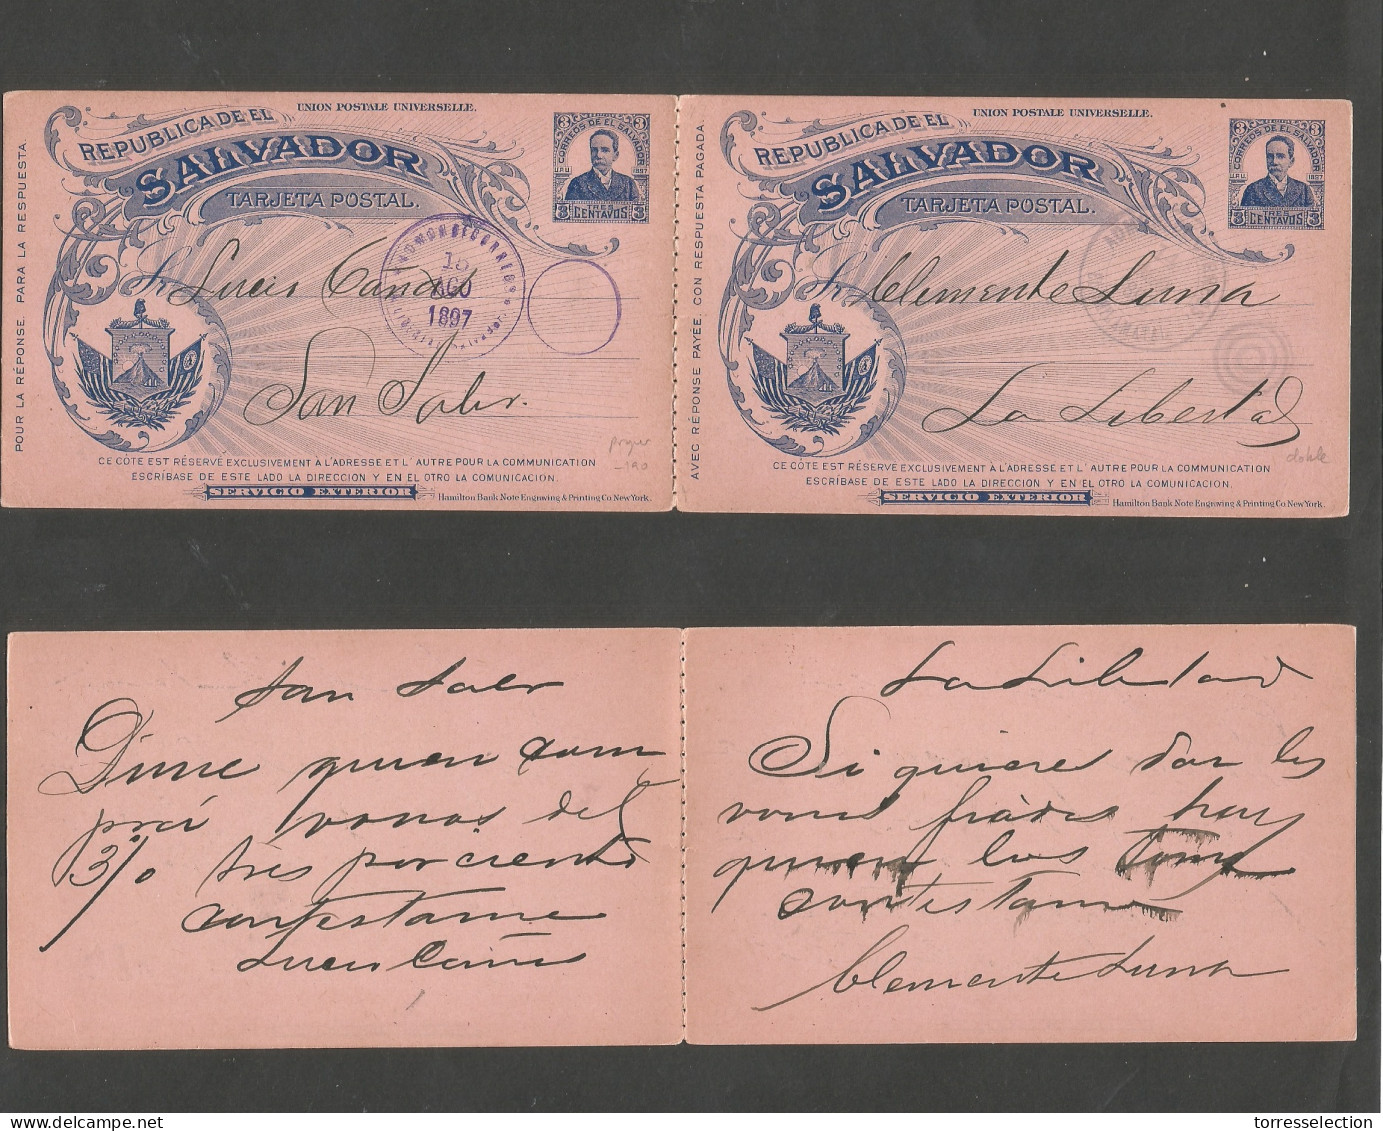 POUR LA RÉPONSE. PARA LA RESPUESTA.
UNION POSTALE UNIVERSELLE.
REPUBLICA DE EL
SALVADOR
TARJETA POSTAL.
3 CORREOS DE EL SALVADOR 3
U.P.U. 1897
3 TRES CENTAVOS 3
15
AGO
1897
Sr Lucio
San Salvr.
CE CÔTE EST RÉSERVÉ EXCLUSIVEMENT À L'ADRESSE ET L' AUTRE POUR LA COMMUNICATION
ESCRÍBASE DE ESTE LADO LA DIRECCION Y EN EL OTRO LA COMUNICACION.
SERVICIO EXTERIOR
Hamilton Bank Note Engraving & Printing Co. New York.
-190
AVEC RÉPONSE PAYÉE. CON RESPUESTA PAGADA.
UNION POSTALE UNIVERSELLE.
REPUBLICA DE EL
SALVADOR
TARJETA POSTAL.
3 CORREOS DE EL SALVADOR 3
U.P.U. 1897
3 TRES CENTAVOS 3
Sr Clemente Luna
La Libertad
doble
CE CÔTE EST RÉSERVÉ EXCLUSIVEMENT À L'ADRESSE ET L' AUTRE POUR LA COMMUNICATION
ESCRÍBASE DE ESTE LADO LA DIRECCION Y EN EL OTRO LA COMUNICACION.
SERVICIO EXTERIOR
Hamilton Bank Note Engraving & Printing Co. New York.
San Salvr
Dime quien com
prá vonos del
3% tres por ciento
contestame
Lucio
La Libertad
Si quieres dar los
vonos fiados hay
quien los tome
contestame
Clemente Luna
torresselection